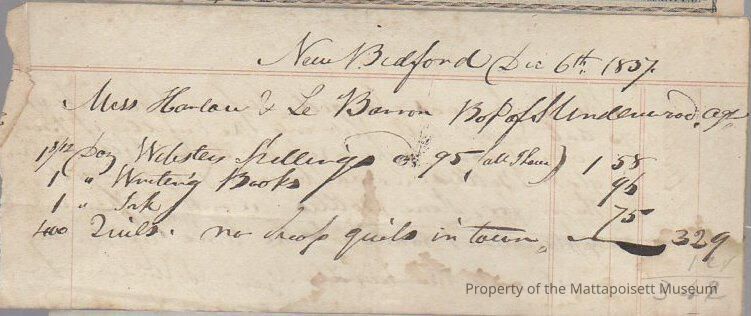 New Bedford Dec 6th. 1837.
Mess Harlow & Le Baron Bot of S Underwood, agt
1 8/12 Doz Websters Spellings @ 95, (all I have) 1 58
1 " Writing Books 96
1 " Ink 75
Quils. no cheap quils in town, 329
Property of the Mattapoisett Museum